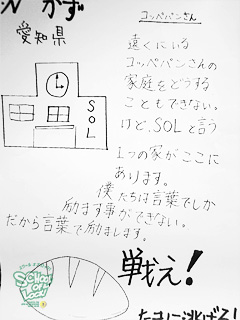 かず
愛知県
SOL
コッペパンさん
遠くにいる
コッペパンさんの
家庭をどうする
こともできない。
けど、SOLと言う
1つの家がここに
あります。
僕たちは言葉でしか
励ます事ができない。
だから言葉で励まします。
戦え!
たまに逃げろ!
SCHOOL OF LOCK!